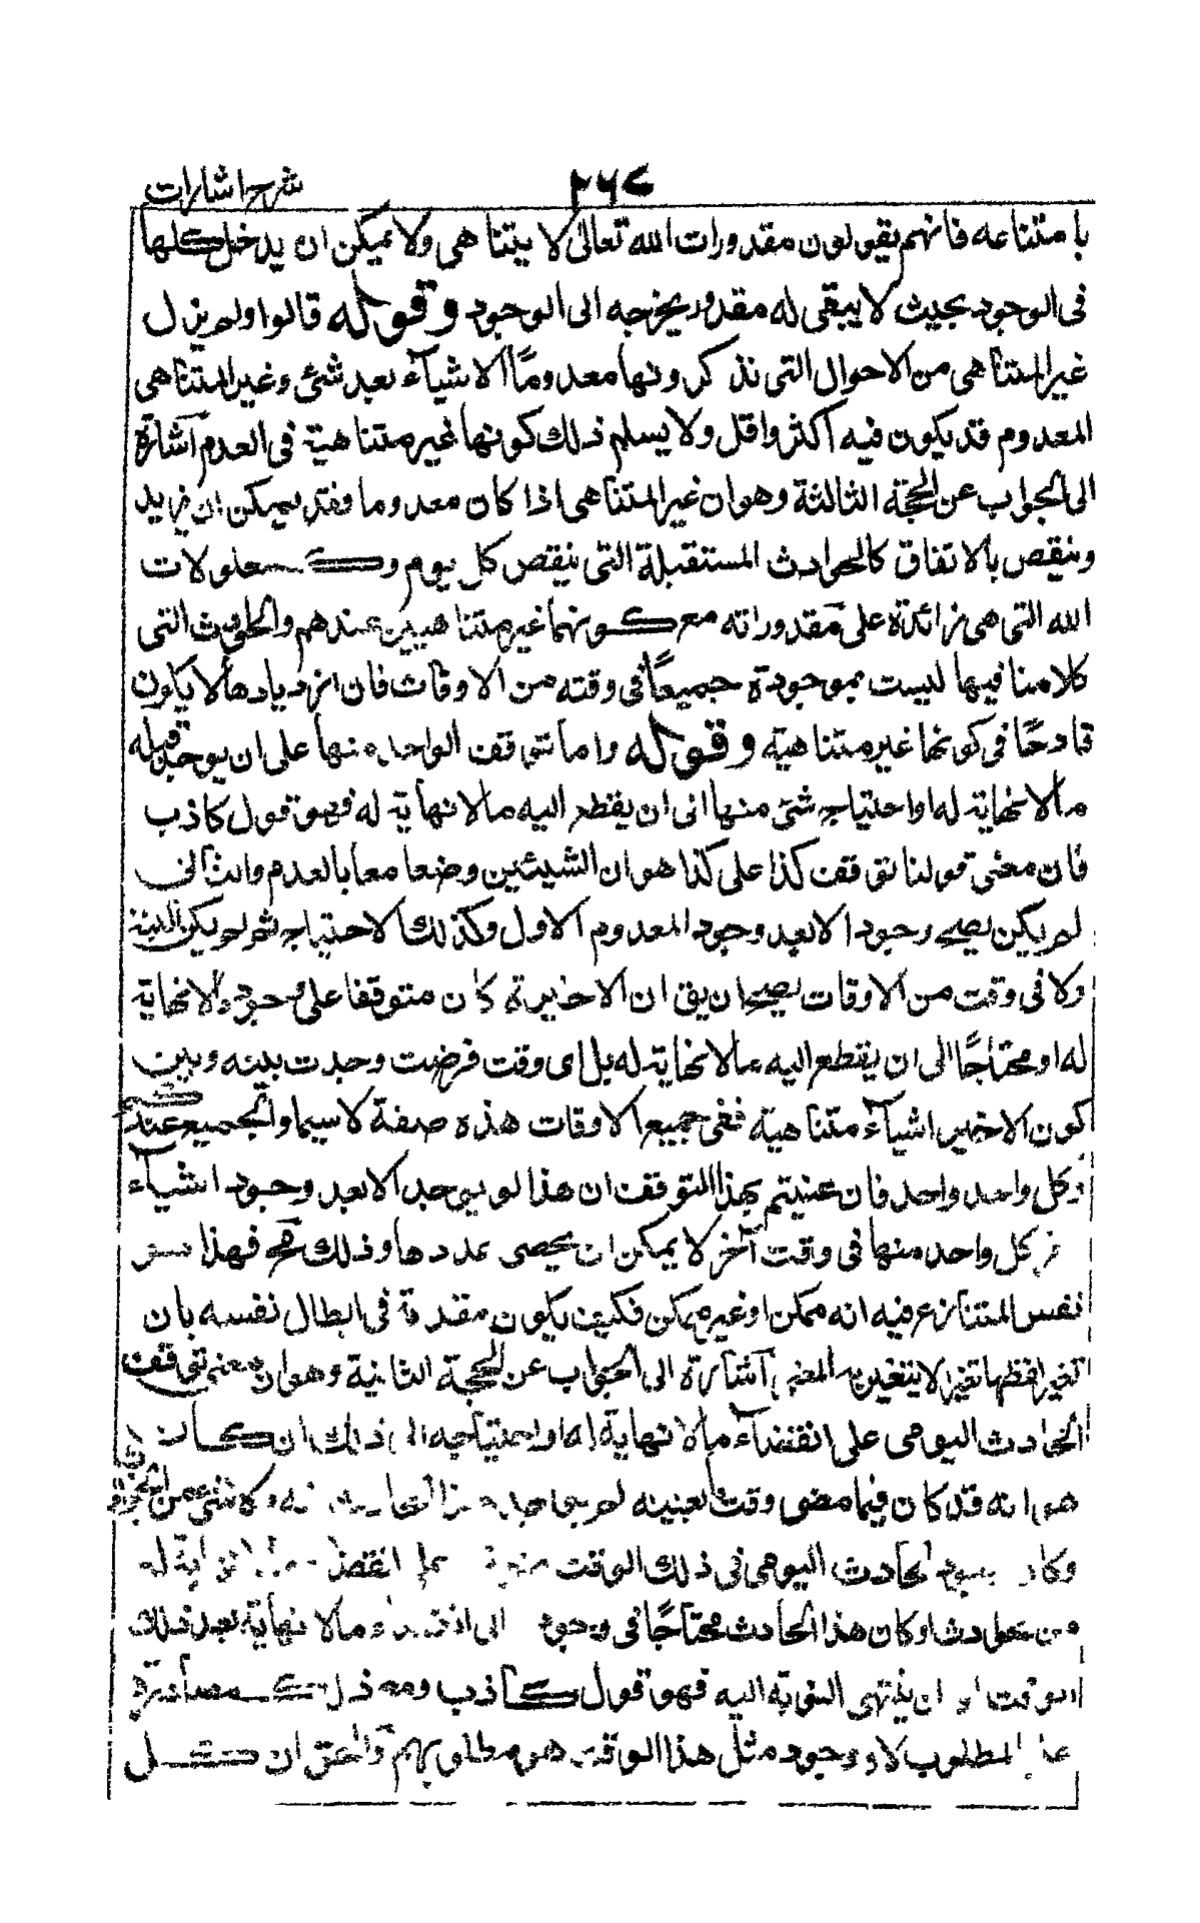 شرح اشارات
٢٦٧
بامتناعه فانهم يقولون مقدورات الله تعالى لا يتناهى ولا يمكن ان يدخل كلها
فى الوجود بحيث لا يبقى له مقدور يخرجه الى الوجود وقوله قالوا ولم يزل
غير المتناهى من الاحوال التى نذكرونها معدوما الا شيآء بعد شئ وغير المتناهى
المعدوم قد يكون فيه اكثر واقل ولا يسلم ذلك كونها غير متناهية فى العدم اشارة
الى الجواب عن الحجة الثالثة وهو ان غير المتناهى اذا كان معدوما فقد يمكن ان يزيد
وينقص بالاتفاق كالحوادث المستقبلة التى ينقص كل يوم وكمعلومات
الله التى هى زائدة على مقدوراته مع كونهما غير متناهيين عندهم والحوادث التى
كلامنا فيها ليست بموجودة جميعًا فى وقته من الاوقات فان ازديادها لا يكون
قادحًا فى كونها غير متناهية وقوله واما توقف الواحد منها على ان يوجد قبله
ما لا نهاية له او احتياج شئ منها الى ان يقطع اليه ما لا نهاية له فهو قول كاذب
فان معنى قولنا توقف كذا على كذا هو ان الشيئين وضعا معا بالعدم والثانى
لم يكن يصح وجود الا بعد وجود المعدوم الاول وكذلك الاحتياج ثم لم يكن البتة
ولا فى وقت من الاوقات يصح ان يق ان الاخيرة كان متوقفا على وجود ما لا نهاية
له او محتاجًا الى ان يقطع اليه ما لا نهاية له بل اى وقت فرضت وجدت بينه وبين
كون الاخير اشيآء متناهية ففى جميع الاوقات هذه صفة لاسيما والجميع عندكم
وكل واحد واحد فان عنيتم بهذا التوقف ان هذا لو يوجد الا بعد وجود اشيآء
كل واحد منها فى وقت آخر لا يمكن ان يحصى عددها وذلك مح فهذا
نفس المتنازع فيه انه ممكن او غير ممكن فكيف يكون مقدمة فى ابطال نفسه بان
تغير لفظها تغيرا لا يتغير به المعنى اشارة الى الجواب عن الحجة الثانية وهو ان معنى توقف
الحادث اليومى على انقضآء ما لا نهاية له او احتياجه الى ذلك ان كان
هو انه قد كان فيما مضى وقت بعينه لم يوجد
وكان وجود الحادث اليومى فى ذلك الوقت
من حوادث او كان هذا الحادث محتاجًا فى وجوده الى انقضاء ما لا نهاية بعد ذلك
الوقت او ان ينتهى النوبة اليه فهو قول كاذب ومع ذلك مصادرة
على المطلوب لا وجود مثل هذا الوقت هو مطلوبهم والحق ان كل